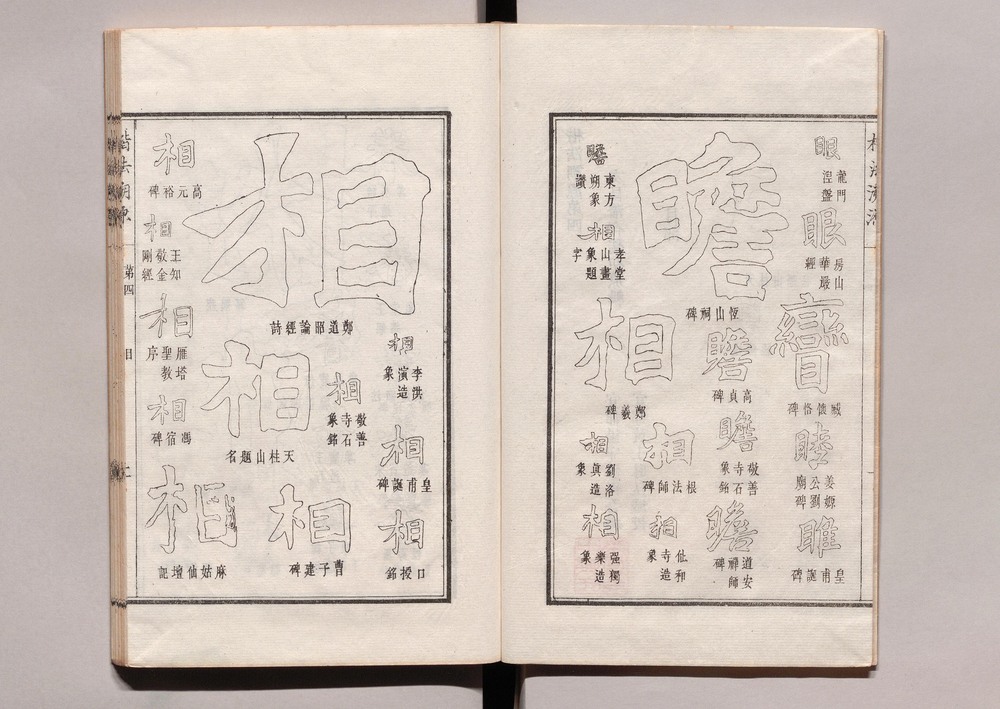 眼
龍門
涅盤
眼
房山
華嚴
經
矕
臧懷恪碑
睦
姜嫄
公劉
廟碑
睢
皇甫誕碑
瞻
恆山祠碑
瞻
高貞碑
瞻
敬善
寺石
象銘
瞻
道安
禪師
碑
瞻
東方
朔象
讚
相
孝堂
山畫
象題
字
相
鄭羲碑
相
根法師碑
相
仙和
寺造
象
相
劉洛
真造
象
相
强獨
樂造
象
相
鄭道昭論經詩
相
李洪
演造
象
相
皇甫誕碑
相
口授銘
相
敬善
寺石
象銘
相
天柱山題名
相
曹子建碑
相
高元裕碑
相
王知
敬金
剛經
相
雁塔
聖教
序
相
馮宿碑
相
麻姑仙壇記
第四
目